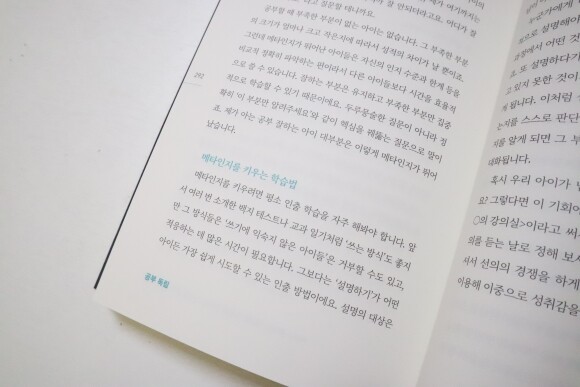 고 질문할 테니까요.
공부할 때 부족한 부분이 없는 아이는 없습니다. 그 부족한 부분
의 크기가 얼마나 크고 작은지에 따라서 성적의 차이가 날 뿐이죠.
그런데 메타인지가 뛰어난 아이들은 자신의 인지 수준과 한계 등을
비교적 정확히 파악하는 편이라서 다른 아이들보다 시간을 효율적
으로 쓸 수 있습니다. 잘하는 부분은 유지하고 부족한 부분만 집중
적으로 학습할 수 있기 때문이에요. 두루뭉술한 질문이 아니라 정
확히 '이 부분만 알려주세요'와 같이 핵심을 꿰뚫는 질문으로 말이
죠. 제가 아는 공부 잘하는 아이 대부분은 이렇게 메타인지가 뛰어
났습니다.
292
메타인지를 키우는 학습법
메타인지를 키우려면 평소 인출 학습을 자주 해봐야 합니다. 앞
서 여러 번 소개한 백지 테스트나 교과 일기처럼 '쓰는 방식'도 좋지
만 그 방식들은 '쓰기에 익숙지 않은 아이들'은 거부할 수도 있고,
적응하는 데 많은 시간이 필요합니다. 그보다는 '설명하기'가 어떤
아이든 가장 쉽게 시도할 수 있는 인출 방법이에요. 설명의 대상은
공부 독립
부은가에게
으로 설명해야
요점에서 어떤 것
요. 또 설명하다가
고 있지 못한 것이
게 됩니다. 이처럼
는지를 스스로 판단
지를 알게 되면 그 부
대화됩니다.
혹시 우리 아이가
요? 그렇다면 이 기회에
○의 강의실>이라고 써
의를 듣는 날로 정해 보
서서 선의의 경쟁을 하게
이용해 이중으로 성취감을